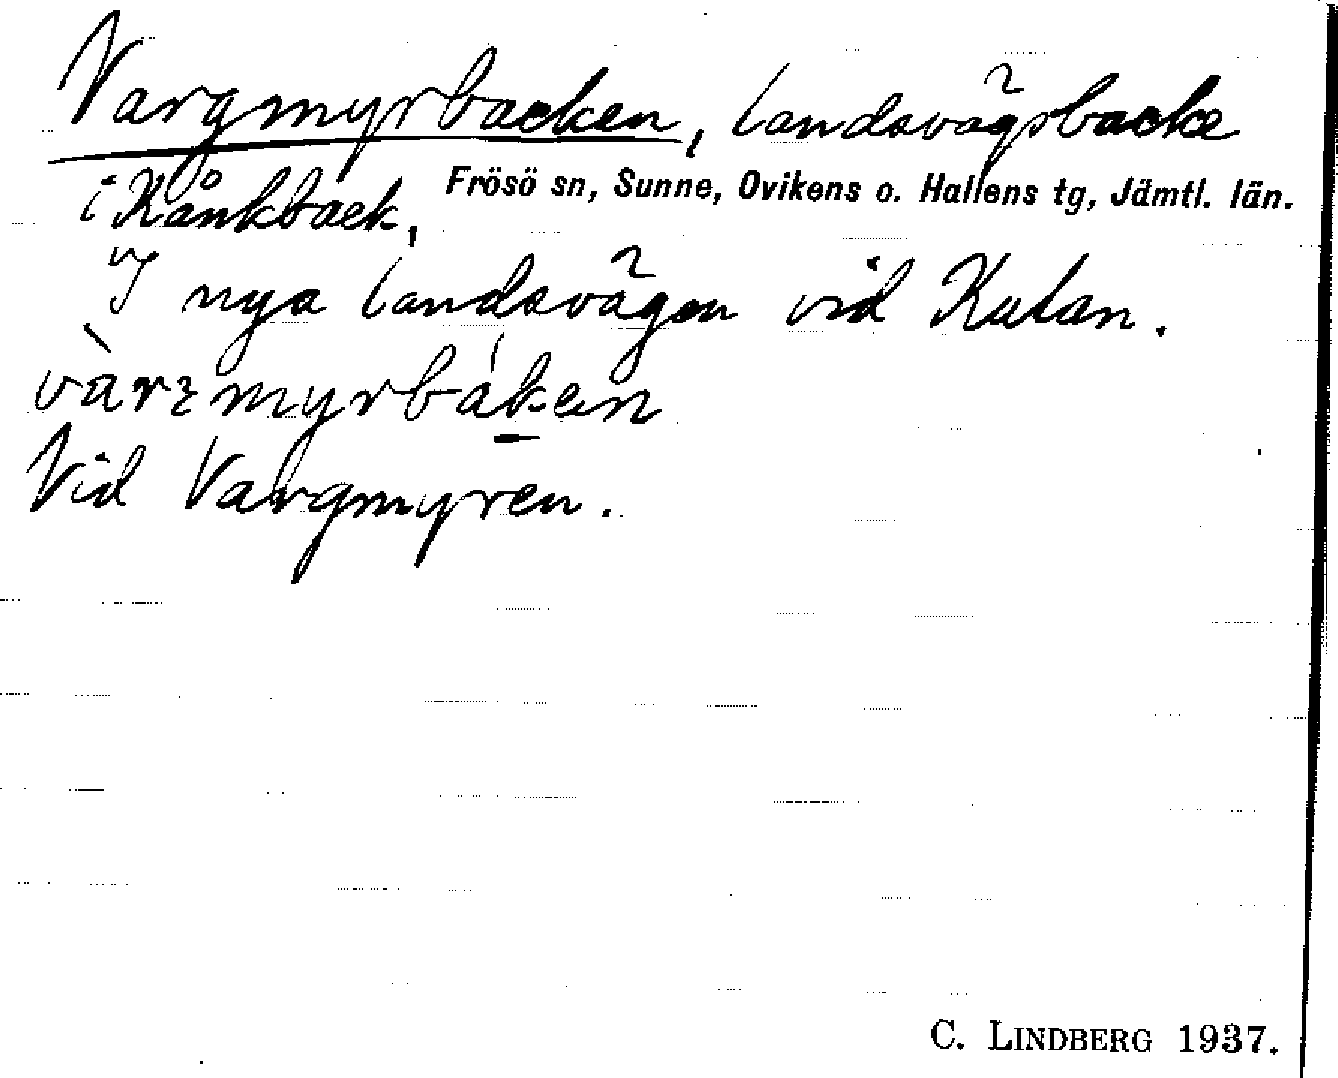 Vargmyrbacken, landsvägsbacke
i Kånkback, Frösö sn, Sunne, Ovikens o. Hallens tg, Jämtl. län.
I nya landsvägen vid Kulan.
vàrᶎmyrbák̲en
Vid Vargmyren.
C. LINDBERG 1937.